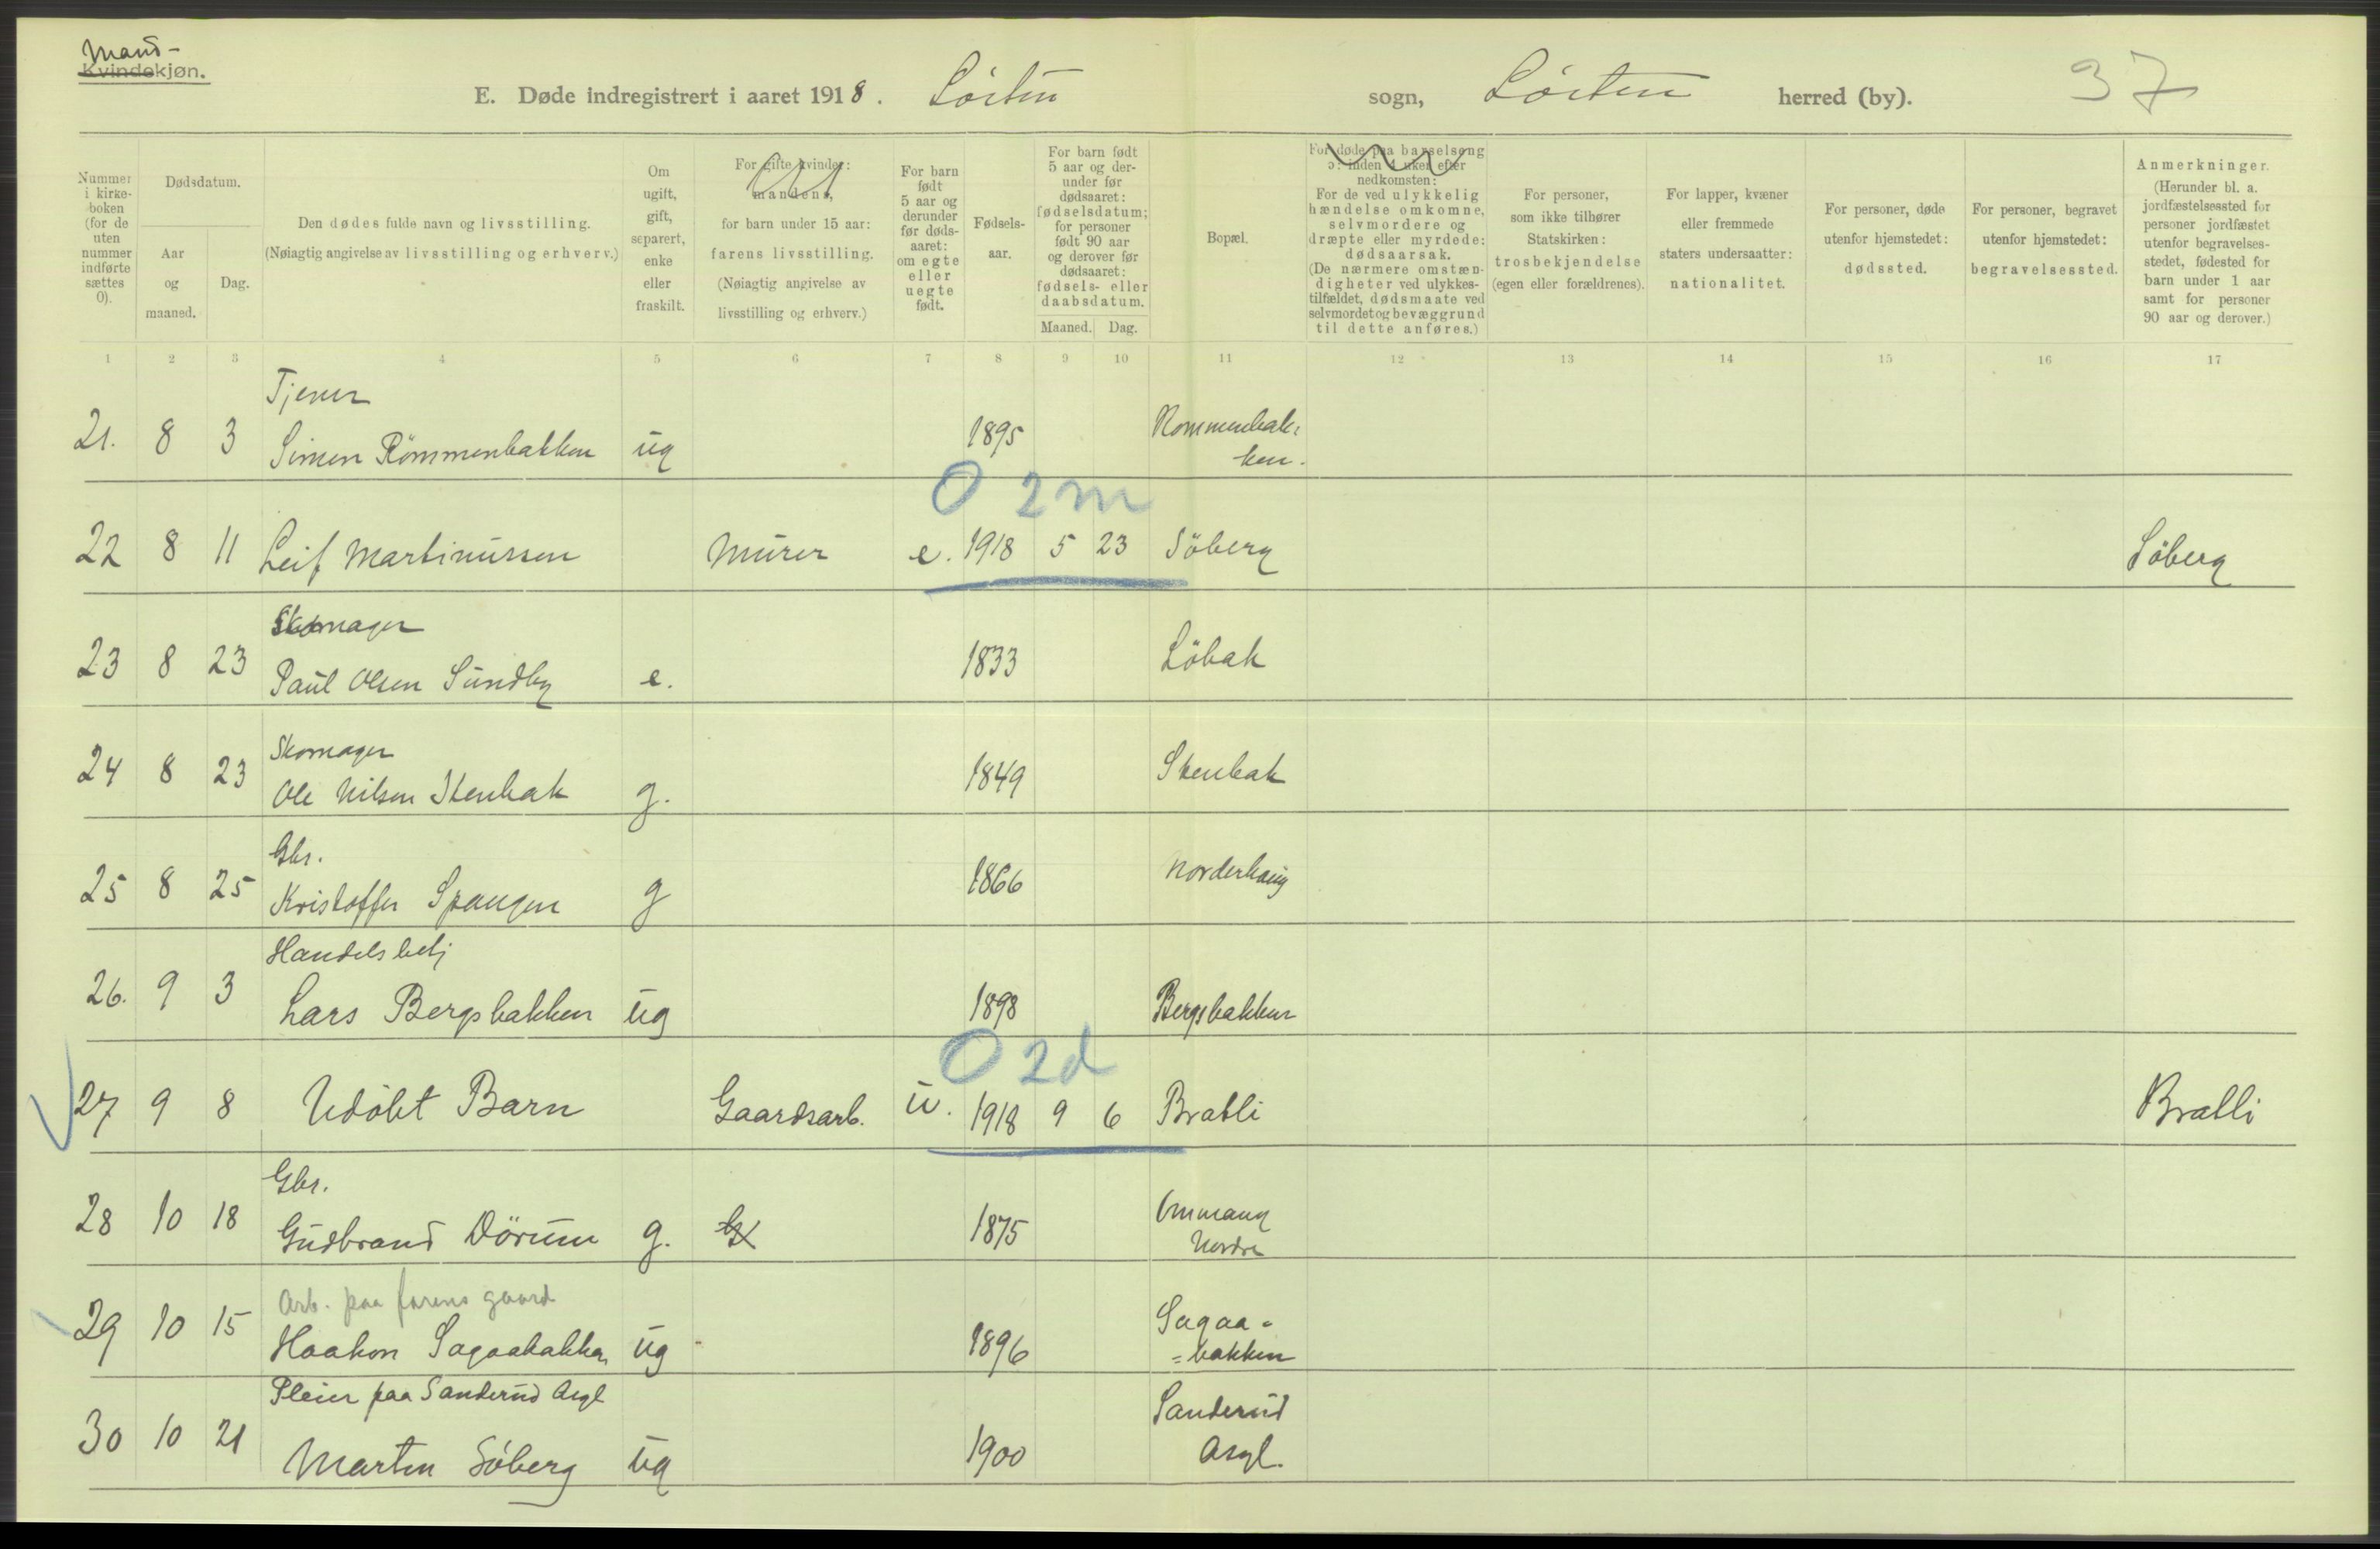 Mand-
Kvindekjøn.
E. Døde indregistrert i aaret 1918. Löiten sogn, Löiten herred (by). 37
Nummer i kirke-boken (for de uten nummer indførte sættes 0).
Dødsdatum.
Aar og maaned.
Dag.
Den dødes fulde navn og livsstilling.
(Nøiagtig angivelse av livsstilling og erhverv.)
Om ugift, gift, separert, enke eller fraskilt.
For gifte kvinder: mandens,
for barn under 15 aar: farens livsstilling.
(Nøiagtig angivelse av livsstilling og erhverv.)
For barn født 5 aar og derunder før døds-aaret: om egte eller uegte født.
Fødsels-aar.
For barn født 5 aar og der-under før dødsaaret: fødselsdatum; for personer født 90 aar og derover før dødsaaret: fødsels- eller daabsdatum.
Maaned. Dag.
Bopæl.
For døde paa barselseng ɔ: inden 4 uker efter nedkomsten:
For de ved ulykkelig hændelse omkomne, selvmordere og dræpte eller myrdede: dødsaarsak.
(De nærmere omstæn-digheter ved ulykkes-tilfældet, dødsmaate ved selvmordet og bevæggrund til dette anføres.)
For personer, som ikke tilhører Statskirken: trosbekjendelse (egen eller forældrenes).
For lapper, kvæner eller fremmede staters undersaatter: nationalitet.
For personer, døde utenfor hjemstedet: dødssted.
For personer, begravet utenfor hjemstedet: begravelsessted.
Anmerkninger.
(Herunder bl. a. jordfæstelsessted for personer jordfæstet utenfor begravelses-stedet, fødested for barn under 1 aar samt for personer 90 aar og derover.)
1 2 3 4 5 6 7 8 9 10 11 12 13 14 15 16 17
Tjener
21. 8 3 Simen Römmenbakken ug 1895 Rommenbak-
ken.
0 2m
22 8 11 Leif Martinussen Murer e. 1918 5 23 Söberg Söberg
Skomager
23 8 23 Paul Olsen Sundby e. 1833 Löbak
Skomager
24 8 23 Ole Nilsen Stenbak g. 1849 Stenbak
Gbr.
25 8 25 Kristoffer Spangen g 1866 Norderhaug
Handelsbetj
26. 9 3 Lars Bergsbakken ug 1898 Bergsbakken
0 2d
27 9 8 Udöbt Barn Gaardsarb. u. 1918 9 6 Bratli Bratli
Gbr.
28 10 18 Gudbrand Dörum g. 1875 Ommang
Nordre
Arb. paa farens gaard
29 10 15 Haakon Sagaabakken ug 1896 Sagaa-
=bakken
Pleier paa Sanderud Asyl
30 10 21 Martin Söberg ug 1900 Sanderud
Asyl.